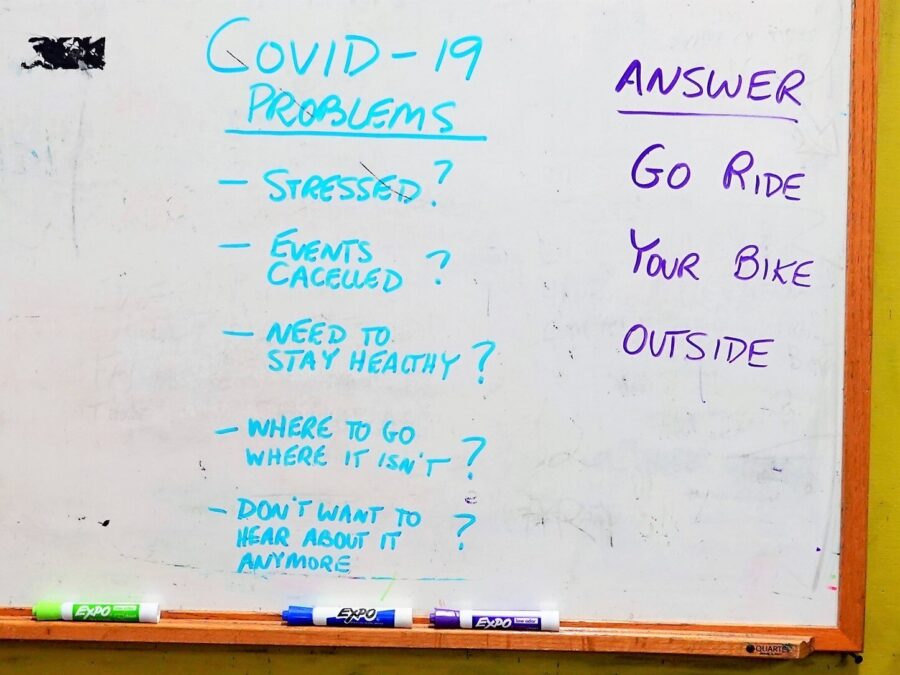 COVID-19
PROBLEMS
- STRESSED?
- EVENTS
CACELLED ?
- NEED TO
STAY HEALTHY ?
- WHERE TO GO
WHERE IT ISN'T ?
- DON'T WANT TO
HEAR ABOUT IT ?
ANYMORE
ANSWER
GO RIDE
YOUR BIKE
OUTSIDE
EXPO
EXPO
EXPO low odor
QUARTET